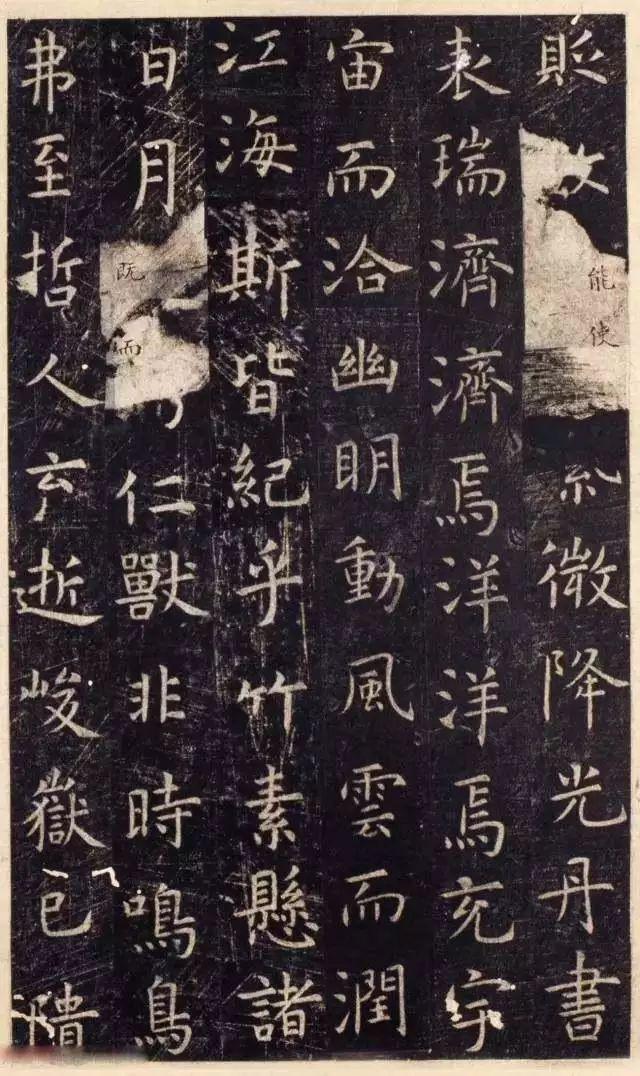 貺故能使微降光丹書
表瑞濟濟焉洋洋焉充宇
宙而洽幽明動風雲而潤
江海斯皆紀乎竹素懸諸
日月既而仁獸非時鳴鳥
弗至哲人云逝峻嶽已隤